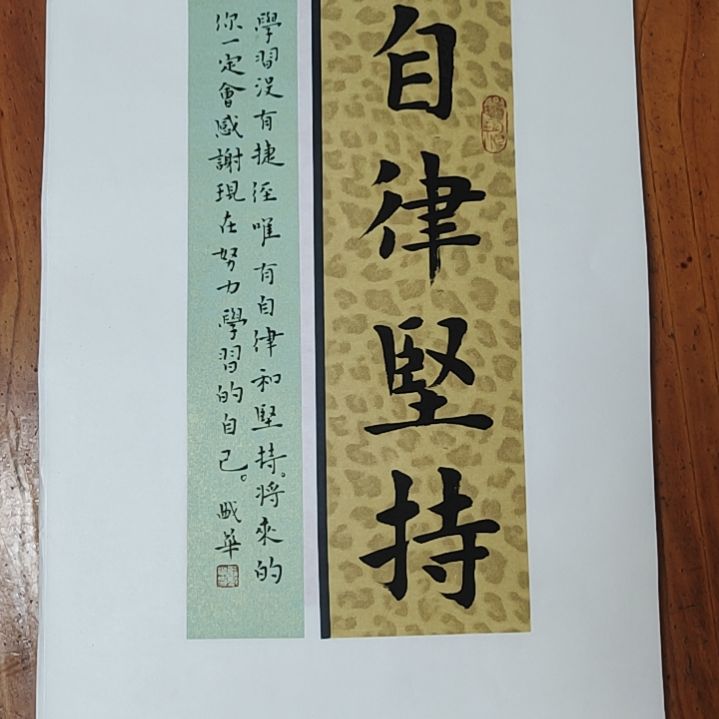 自律堅持
學習没有捷徑唯有自律和堅持。將來的
你一定會感謝現在努力學習的自己。
華